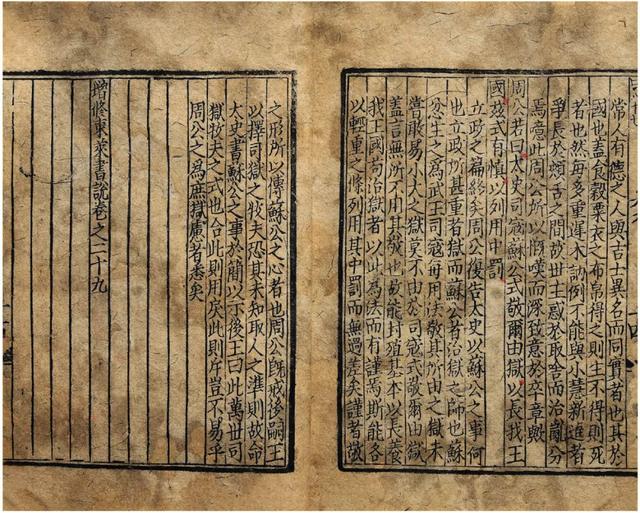 常人有德之人與吉士異名而同實者也其於
國也蓋食穀粟衣之布帛得之則生不得則死
者也然每多重遲木訥例不能與小慧新進者
爭長於頰舌之間故世主惑於取舍而治亂分
焉意此周公所以慨嘆而深致意於卒章歟
周公若曰太史司寇蘇公式敬爾由獄以長我王
國茲式有慎以列用中罰
立政之篇終矣周公復告太史以蘇公之事何
也立政所甚重者獄而蘇公者治獄之師也蘇
忿生之為武王司寇每用法敬其所由之獄未
嘗敢易小大之獄莫不由於司寇式敬爾由獄
蓋言無所不用其敬也故能封殖基本以長養
我王國苟治獄者以此為法而有謹焉斯能各
以輕重之條列用其中罰而無過差矣謹者故
之形所以傳蘇公之心者也周公既戒後嗣王
以擇司獄之牧夫恐其未知取人之準則故命
太史書蘇公之事於簡以示後王曰此萬世司
獄牧夫之式也合此則用矣此則斥豈不易乎
周公之為庶獄慮者悉矣
增修東萊書說卷之二十九